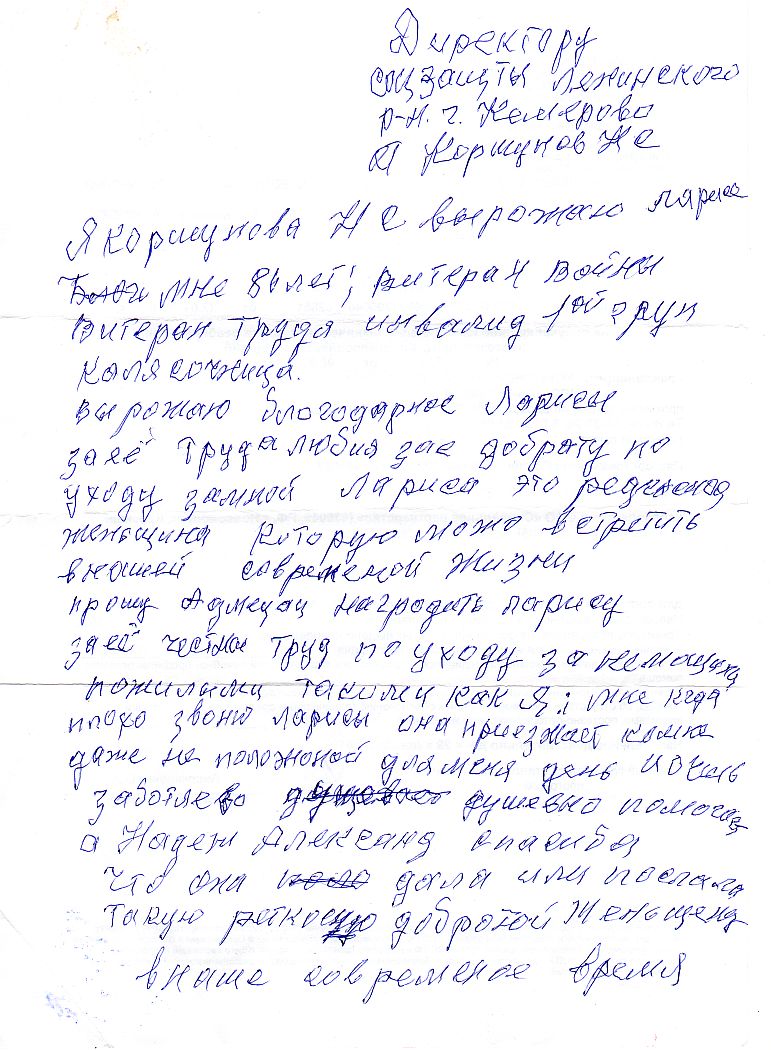 Директору
соцзащты Ленинского
р-н. г. Кемерово
Коршунов Н С
Я Коршунова Н С вырожаю лариса
Благ мне 84 лет; витеран войны
Витеран труда инвалид 1ой груп
Калясочница.
вырожаю благодарнос Ларисы
заеё трудалюбия зае доброту по
уходу замной Лариса это редконая
женьщина которую можо встретить
внашей современой жизни
прошу наградить ларису
заеё честны труд по уходу за немощных
пожилыми такими как я; мне кгда
плохо звоню ларисы она приезжает комне
даже не положоной дляменя день иочень
заботлево душевно помогае
а Надеж Александ спасиба
что она дала или послала
такую реткосную добротой Женьщену
внаше современое время